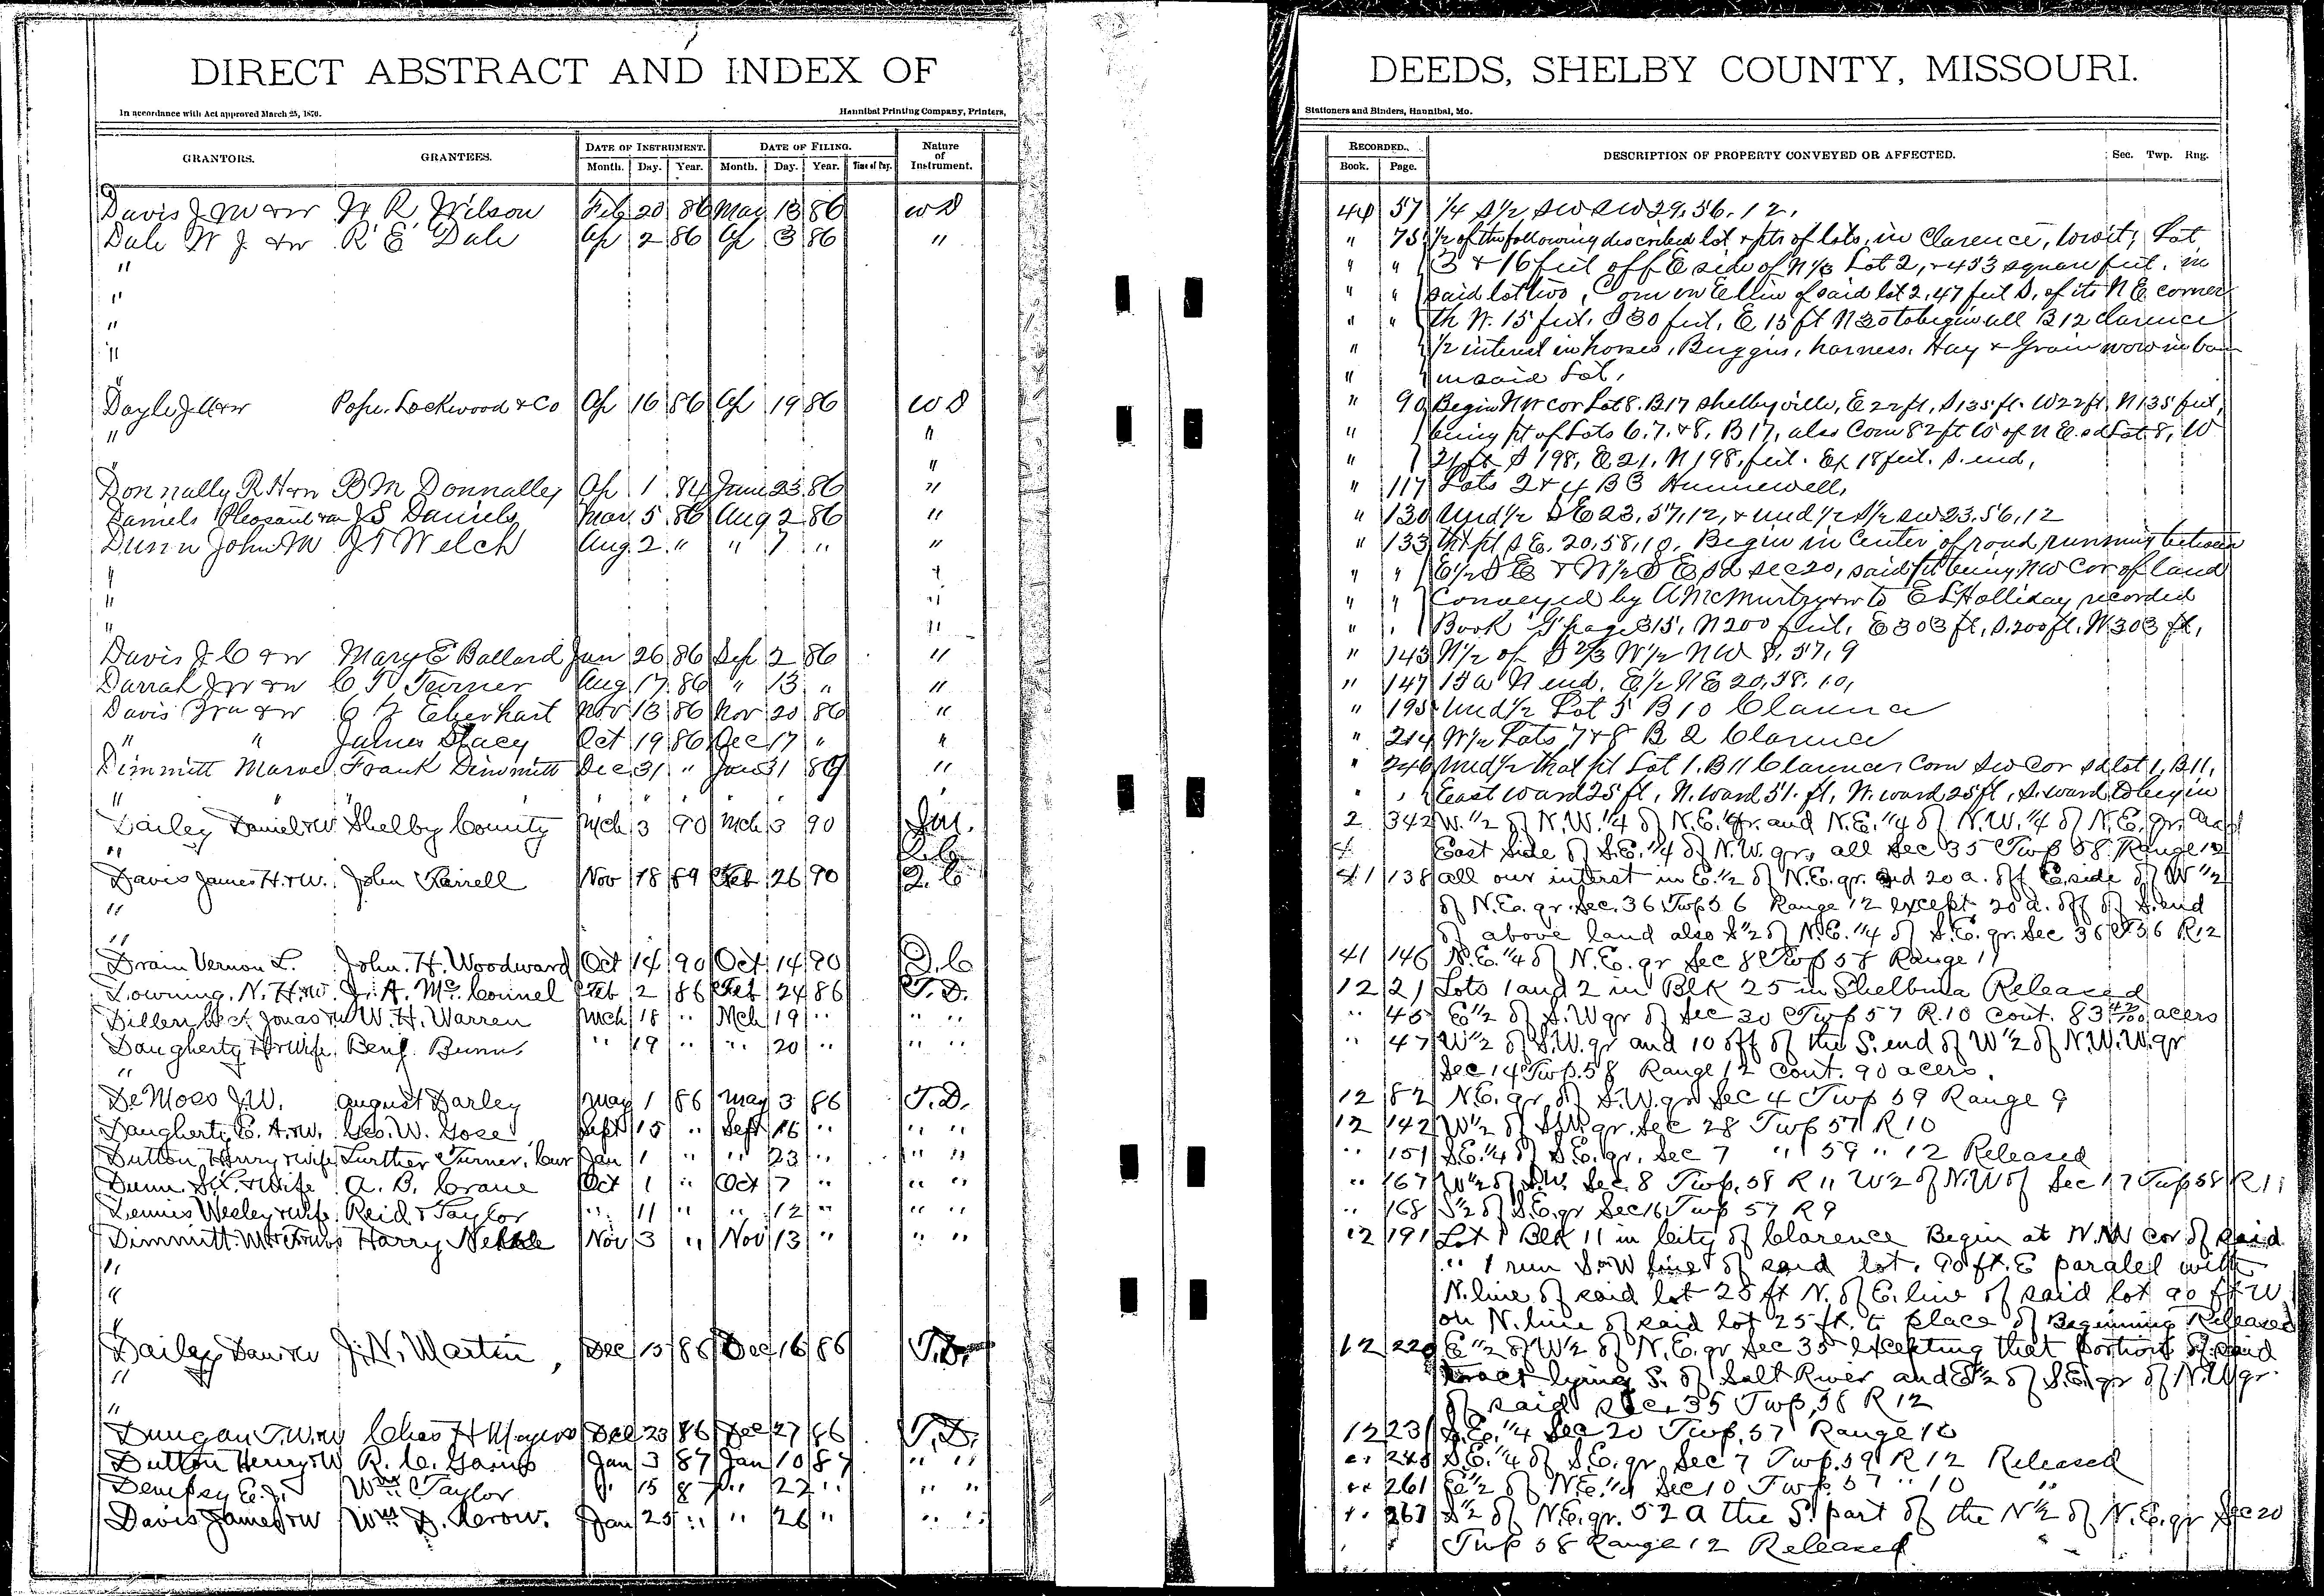 DIRECT ABSTRACT AND INDEX OF DEEDS, SHELBY COUNTY, MISSOURI.
In accordance with Act approved March 25, 1870. Hannibal Printing Company, Printers, Stationers and Binders, Hannibal, Mo.
GRANTORS. GRANTEES. DATE OF INSTRUMENT. DATE OF FILING. Nature of Instrument. RECORDED. DESCRIPTION OF PROPERTY CONVEYED OR AFFECTED. Sec. Twp. Rng.
Month. Day. Year. Month. Day. Year. Time of Day. Book. Page.
Davis J M & w R Wilson Feb 20 86 May 13 86 W D 44 57 1/4 S 1/2 SW SW 29, 56, 12,
Dale W J. & w R E Dale Ap 2 86 Ap 3 86 " " 75 1/2 of the following described lot & pts of lots, in Clarence, towit; Lot
" " " 3 & 16 feet off E side of N 1/3 Lot 2, & 453 square feet. in
" " " said lot two, Com on E line of said lot 2, 47 feet S. of its N E corner
" " " th W. 15 feet. S 30 feet, E 15 ft N 30 to begin all B 12 Clarence
" " 1/2 interest in horses, Buggies, harness, Hay & Grain now in barn
" " in said Lot,
Doyle J & w Pope. Lockwood & Co Ap 16 86 Ap 19 86 W D " 90 Begin NW cor Lot 8. B 17 Shelbyville, E 22 ft, S 135 ft. W 22 ft, N 135 feet,
" " " being pt of Lots 6. 7. & 8, B 17, also Com 82 ft W of N E. sd Lot 8, W
" " " 21 ft S 198, E 21, N 198, feet. Ex 18 feet. S. end,
Donnally R H & w B M Donnalley Ap 1 84 June 23 86 " " 117 Lots 2 & 4 B 3 Hunnewell,
Daniels Pleasant & w J S Daniels Mar 5 86 Aug 2 86 " " 130 Und 1/2 S E 23, 57, 12, & und 1/2 S 1/2 SW 23, 56, 12
Dunn John M J T Welch Aug 2 " " 7 " " " 133 that pt S E. 20, 58, 10, Begin in Center of road running between
" " " " E 1/2 S E & W 1/2 S E sd sec 20, said pt being NW Cor of land
" " " " Conveyed by A McMurtry & w to E L Holliday recorded
" " " " Book G page 315, N 200 feet, E 303 ft, S. 200 ft, W 303 ft,
Davis J C & w Mary E Ballard Jan 26 86 Sep 2 86 " " 143 N 1/2 of S 2/3 W 1/2 N W 8, 57, 9
Darrah J W & w C T Turner Aug 17 86 " 13 " " " 147 15 a N end, E 1/2 N E 20, 58, 10,
Davis & w Eberhart Nov 13 86 Nov 20 86 " " 195 Und 1/2 Lot 5 B 10 Clarence
" " James Stacy Oct 19 86 Dec 17 " " " 214 W 1/2 Lots 7 & 8 B 2 Clarence
Dimmitt Frank Dimmitt Dec 31 " Jan 31 87 " " 246 Und 1/2 that pt Lot 1, B 11 Clarence Com SW Cor sd lot 1, B 11,
" " " " East ward 25 ft, N. ward 51. ft, W. ward 25 ft, S. ward to begin
Dailey Daniel & W Shelby County Mch 3 90 Mch 3 90 2 342 W. 1/2 of N.W. 1/4 of N.E. qr. and N.E. 1/4 of N.W. 1/4 of N.E. qr. and
" East Side of S.E. 1/4 of N.W. qr, all Sec 35 Twp 58 Range 12
Davis James H. & W. John Farrell Nov 18 89 Feb 26 90 Q. C 41 138 all our interest in E. 1/2 of N.E. qr. and 20 a. off E. side of W 1/2
" of N.E. qr. Sec. 36 Twp 56 Range 12 except 20 a. off of S. end
" of above land also S 1/2 of N.E. 1/4 of S.E. qr. Sec 36 T 56 R 12
Drain Vernon L. John. H. Woodward Oct 14 90 Oct 14 90 Q. C 41 146 N.E. 1/4 of N.E. qr Sec 8 Twp 58 Range 11
Downing. N. H. & W. J. A. McConnel Feb 2 86 Feb 24 86 T. D. 12 21 Lots 1 and 2 in Blk 25 in Shelbina Released
Dillen W. H. Warren Mch 18 " Mch 19 " " " " 45 E 1/2 of S. W qr of Sec 30 Twp 57 R. 10 cont. 83 acers
Daugherty H & Wife Benj. Bunn, " 19 " " 20 " " " " 47 W 1/2 of S.W. qr and 10 off of the S. end of W 1/2 of N.W. W. qr
" Sec 14 Twp. 58 Range 12 cont. 90 acers.
DeMoss J. W. August Darley May 1 86 May 3 86 T. D. 12 82 N.E. qr of S.W. qr Sec 4 Twp 59 Range 9
Daugherty E. A. & W. Geo. W. Gose Sept 15 " Sept 16 " " " 12 142 W 1/2 of S.W. qr. Sec 28 Twp 57 R 10
Dutton Henry & Wife Lurther Turner, Cur Jan 1 " " 23 " " " " 151 S.E. 1/4 of S.E. qr. Sec 7 " 59 " 12 Released
Dunn & Wife A. B. Crane Oct 1 " Oct 7 " " " " 167 W 1/2 of S.W. Sec. 8 Twp. 58 R 11 W 2 of N.W of Sec 17 Twp 58 R 11
Dennis Wesley & Wife Reid & Taylor " 11 " " 12 " " " " 168 S 1/2 of S.E. qr Sec 16 Twp 57 R 9
Dimmitt Harry Nov 3 " Nov 13 " " " 12 191 Lot 1 Blk 11 in City of Clarence Begin at N.W cor of said
" " 1 run S. W line of said lot. 90 ft. E paralel with
" N. line of said lot 25 ft N. of E. line of said lot 90 ft W
" on N. line of said lot 25 ft. to place of Beginning Released
Dailey Dan & W J. N. Martin, Dec 15 86 Dec 16 86 T. D. 12 220 E 1/2 of W 1/2 of N.E. qr Sec 35 excepting that portion of said
" tract lying S. of Salt River and E 1/2 of S.E. qr of N.W qr.
" of said Sec. 35 Twp. 58 R 12
Dungan T. W. & W Chas H Meyers Dec 23 86 Dec 27 86 T. D. 12 231 S.E. 1/4 Sec 20 Twp. 57 Range 10
Dutton Henry & W R. C. Gains Jan 3 87 Jan 10 87 " " " 245 S.E. 1/4 of S.E. qr Sec 7 Twp. 59 R 12 Released
Dempsy E. J. Wm Taylor J. 15 87 " 22 " " " " 261 E 1/2 of N.E. 1/4 Sec 10 Twp. 57 " 10 "
Davis James & W Wm Jan 25 " " 26 " " " " 267 S 1/2 of N.E. qr. 52 a the S. part of the N 1/2 of N.E. qr Sec 20
Twp 58 Range 12 Released